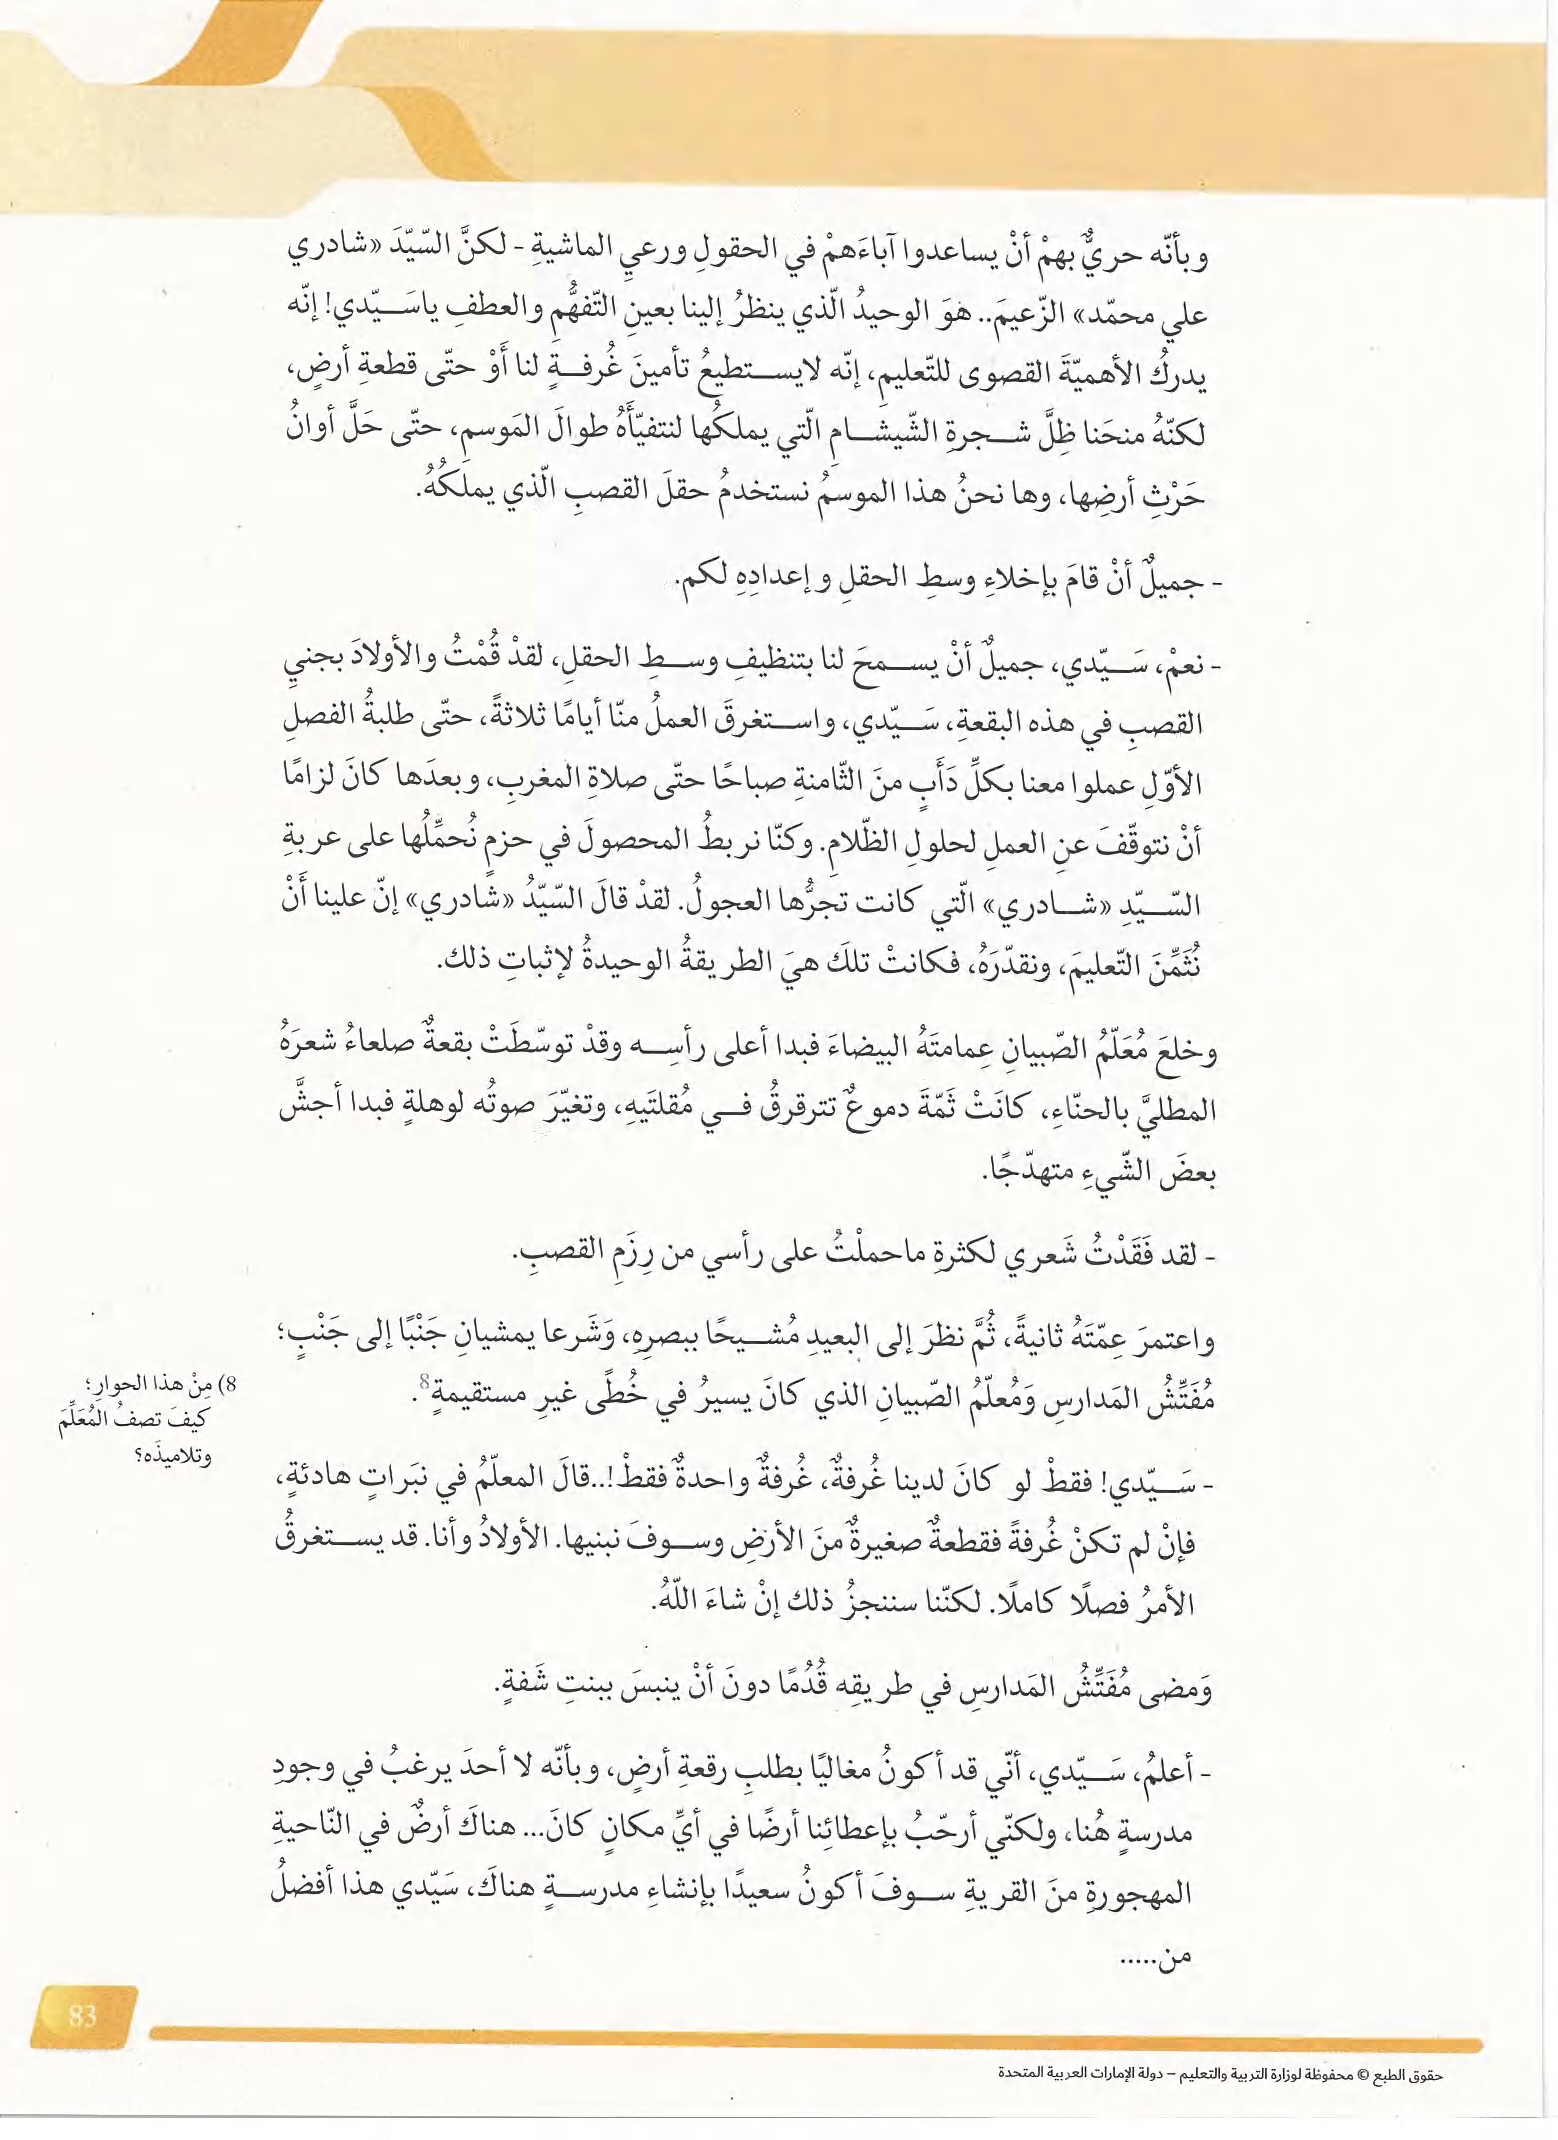 وبأنّه حريٌّ بهمْ أنْ يساعدوا آباءَهمْ في الحقولِ ورعيِ الماشيةِ - لكنَّ السّيّدَ «شادري
علي محمّد» الزّعيمَ.. هوَ الوحيدُ الّذي ينظرُ إلينا بعينِ التّفهُّمِ والعطفِ ياسَيّدي! إنّه
يدركُ الأهميّةَ القصوى للتّعليمِ، إنّه لايستطيعُ تأمينَ غُرفةٍ لنا أَوْ حتّى قطعةِ أرضٍ،
لكنّهُ منحَنا ظِلَّ شجرةِ الشّيشامِ الّتي يملكُها لنتفيّأَهُ طوالَ المَوسمِ، حتّى حَلَّ أوانُ
حَرْثِ أرضِها، وها نحنُ هذا الموسمُ نستخدمُ حقلَ القصبِ الّذي يملَكُهُ.
- جميلٌ أنْ قامَ بإخلاءِ وسطِ الحقلِ وإعدادِهِ لكم.
- نعمْ، سَيّدي، جميلٌ أنْ يسمحَ لنا بتنظيفِ وسطِ الحقلِ، لقدْ قُمْتُ والأولادَ بجنيِ
القصبِ في هذه البقعةِ، سَيّدي، واستغرقَ العملُ منّا أيامًا ثلاثةً، حتّى طلبةُ الفصلِ
الأوّلِ عملوا معنا بكلِّ دَأَبٍ منَ الثّامنةِ صباحًا حتّى صلاةِ المغربِ، وبعدَها كانَ لزامًا
أنْ نتوقّفَ عنِ العملِ لحلولِ الظّلامِ. وكنّا نربطُ المحصولَ في حزمٍ نُحمِّلُها على عربةِ
السّيّدِ «شادري» الّتي كانت تجرُّها العجولُ. لقدْ قالَ السّيّدُ «شادري» إنّ علينا أَنْ
نُثَمِّنَ التّعليمَ، ونقدّرَهُ، فكانتْ تلكَ هيَ الطريقةُ الوحيدةُ لإثباتِ ذلك.
وخلعَ مُعَلّمُ الصّبيانِ عِمامتَهُ البيضاءَ فبدا أعلى رأسِه وقدْ توسّطَتْ بقعةٌ صلعاءُ شعرَهُ
المطليَّ بالحنّاءِ، كانَتْ ثَمّةَ دموعٌ تترقرقُ في مُقلتَيهِ، وتغيّرَ صوتُه لوهلةٍ فبدا أجشَّ
بعضَ الشّيءِ متهدّجًا.
- لقد فَقَدْتُ شَعري لكثرةِ ماحملْتُ على رأسي من رِزَمِ القصبِ.
واعتمرَ عِمّتَهُ ثانيةً، ثُمَّ نظرَ إلى البعيدِ مُشيحًا ببصرِهِ، وَشَرعا يمشيانِ جَنْبًا إلى جَنْبٍ؛
مُفَتِّشُ المَدارسِ وَمُعلّمُ الصّبيانِ الذي كانَ يسيرُ في خُطًى غيرِ مستقيمةٍ8.
8) مِنْ هذا الحوارِ؛
كيفَ تصفُ المُعَلِّمَ
وتلاميذَه؟
- سَيّدي! فقطْ لو كانَ لدينا غُرفةٌ، غُرفةٌ واحدةٌ فقطْ!..قالَ المعلّمُ في نبَراتٍ هادئةٍ،
فإنْ لم تكنْ غُرفةً فقطعةٌ صغيرةٌ منَ الأرضِ وسوفَ نبنيها. الأولادُ وأنا. قد يستغرقُ
الأمرُ فصلًا كاملًا. لكنّنا سننجزُ ذلك إنْ شاءَ اللّهُ.
وَمضى مُفَتِّشُ المَدارسِ في طريقِه قُدُمًا دونَ أنْ ينبسَ ببنتِ شَفةٍ.
- أعلمُ، سَيّدي، أنّي قد أكونُ مغاليًا بطلبِ رقعةِ أرضٍ، وبأنّه لا أحدَ يرغبُ في وجودِ
مدرسةٍ هُنا، ولكنّي أرحّبُ بإعطائِنا أرضًا في أيِّ مكانٍ كانَ... هناكَ أرضٌ في النّاحيةِ
المهجورةِ منَ القريةِ سوفَ أكونُ سعيدًا بإنشاءِ مدرسةٍ هناكَ، سَيّدي هذا أفضلُ
من.....
83
حقوق الطبع © محفوظة لوزارة التربية والتعليم – دولة الإمارات العربية المتحدة